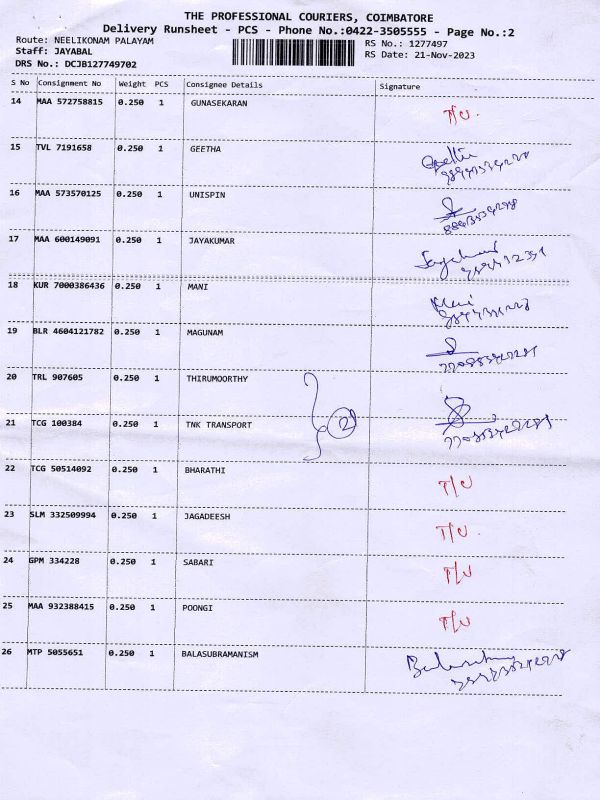 THE PROFESSIONAL COURIERS, COIMBATORE
Delivery Runsheet - PCS - Phone No.:0422-3505555 - Page No.:2
Route: NEELIKONAM PALAYAM RS No.: 1277497
Staff: JAYABAL RS Date: 21-Nov-2023
DRS No.: DCJB127749702
S No Consignment No Weight PCS Consignee Details Signature
14 MAA 572758815 0.250 1 GUNASEKARAN T/U.
15 TVL 7191658 0.250 1 GEETHA Geetha
16 MAA 573570125 0.250 1 UNISPIN
17 MAA 600149091 0.250 1 JAYAKUMAR
18 KUR 7000386436 0.250 1 MANI Mani
19 BLR 4604121782 0.250 1 MAGUNAM
20 TRL 907605 0.250 1 THIRUMOORTHY
2
21 TCG 100384 0.250 1 TNK TRANSPORT
22 TCG 50514092 0.250 1 BHARATHI T/U
23 SLM 332509994 0.250 1 JAGADEESH T/U.
24 GPM 334228 0.250 1 SABARI T/U
25 MAA 932388415 0.250 1 POONGI T/U
26 MTP 5055651 0.250 1 BALASUBRAMANISM